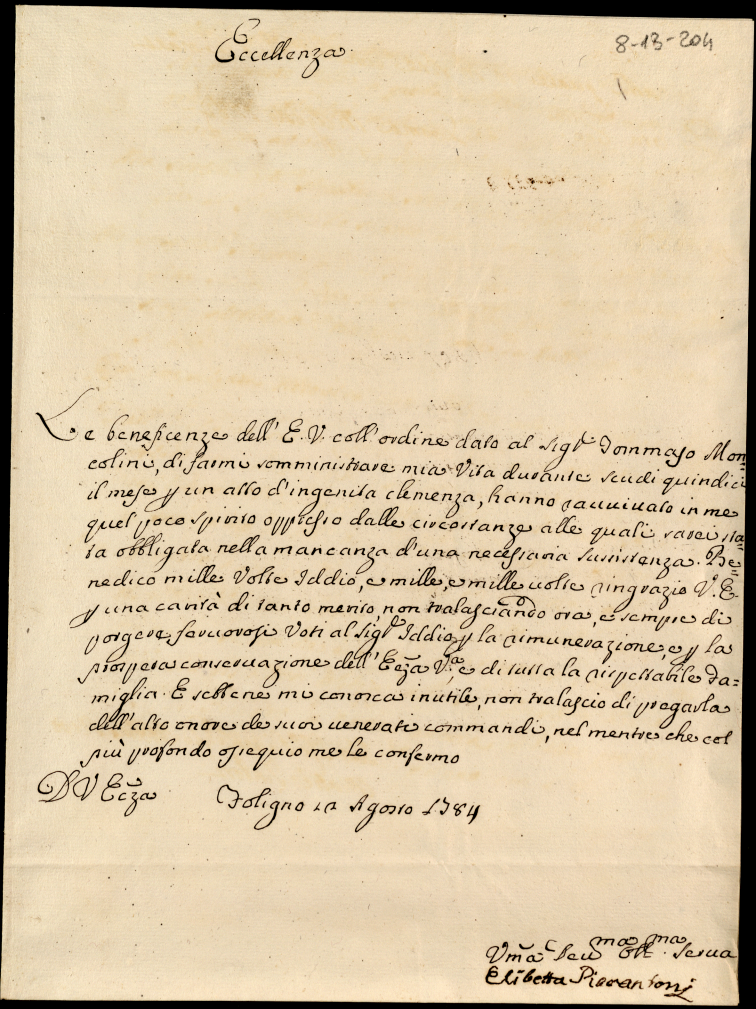 8-13-204
Eccellenza
Le beneficenze dell' E. V. coll'ordine dato al Sigr Tommaso Mon=
colini, di farmi somministrare mia Vita durante scudi quindici
il mese p un atto d'ingenita clemenza, hanno ravvivato in me
quel poco spirito oppresso dalle circostanze alle quali sarei sta=
ta obbligata nella mancanza d'una necessaria sussistenza. Be=
nedico mille Volte Iddio, e mille, e mille volte ringrazio V. E.
p una carità di tanto merito, non tralasciando ora, e sempre di
porgere fervorosi Voti al Sigr Iddio p la rimunerazione, e p la
prospera conservazione dell' Ecza Va, e di tutta la rispettabile Fa=
miglia. E sebbene mi conosca inutile, non tralascio di pregarla
dell'alto onore de suoi venerati commandi, nel mentre che col
più profondo ossequio me le confermo
D V Ecza Foligno Agosto 1784
Uma Devma Obma Serva
Elisbetta Pierantonj